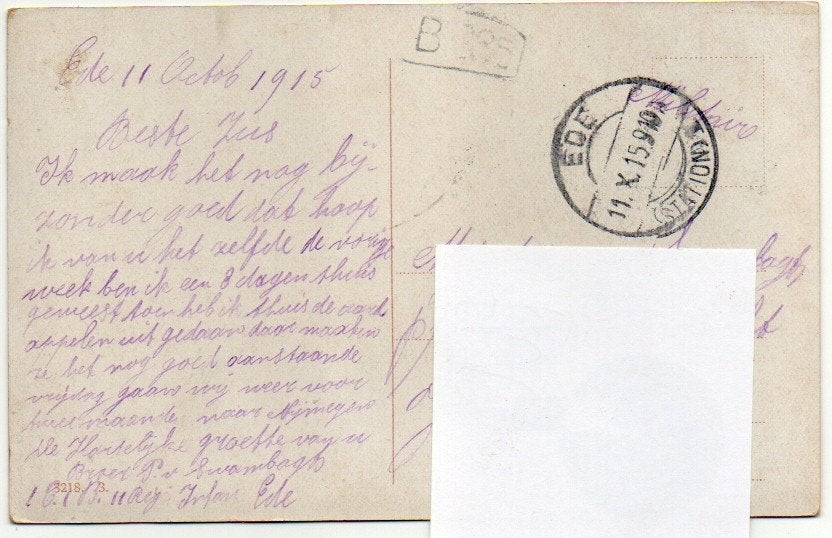 Ede 11 Octob 1915
Beste Zus
Ik maak het nog bij-
zonder goed dat hoop
ik van u het zelfde de vorige
week ben ik een 8 dagen thuis
geweest toen heb ik thuis de aard
appelen uit gedaan daar maaken
ze het nog goed aanstaande
vrijdag gaan wij weer voor
twee maanden naar Nijmegen
De Hartelijke groette van u
Broer P. v
1 C. 1 B. 11 Reg Infan Ede
3218. 3.
B
Militair
EDE
11.X.15.9
(STATION)